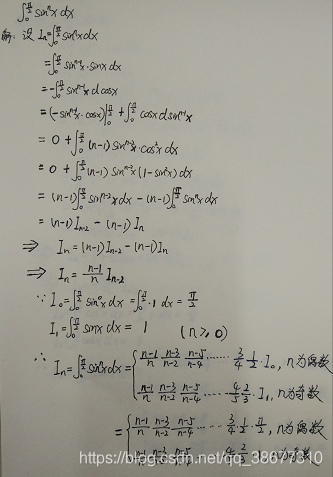 ∫₀^{π/2} sinⁿx dx
解: 设 Iₙ=∫₀^{π/2} sinⁿx dx
=∫₀^{π/2} sinⁿ⁻¹x·sinx dx
=-∫₀^{π/2} sinⁿ⁻¹x d cosx
=(-sinⁿ⁻¹x·cosx)|₀^{π/2} + ∫₀^{π/2} cosx d sinⁿ⁻¹x
= 0 + ∫₀^{π/2} (n-1) sinⁿ⁻²x·cos²x dx
= 0 + ∫₀^{π/2} (n-1) sinⁿ⁻²x (1-sin²x) dx
= (n-1)∫₀^{π/2} sinⁿ⁻²x dx - (n-1)∫₀^{π/2} sinⁿx dx
= (n-1) Iₙ₋₂ - (n-1) Iₙ
⇒ Iₙ = (n-1) Iₙ₋₂ - (n-1) Iₙ
⇒ Iₙ = (n-1)/n Iₙ₋₂
∵ I₀=∫₀^{π/2} sin⁰x dx = ∫₀^{π/2}·1 dx = π/2
I₁=∫₀^{π/2} sinx dx = 1 (n≥0)
∴ Iₙ=∫₀^{π/2} sinⁿx dx = { (n-1)/n (n-3)/(n-2) (n-5)/(n-4) ······ 3/4 1/2 · I₀, n为偶数
(n-1)/n (n-3)/(n-2) (n-5)/(n-4) ······ 4/5 2/3 · I₁, n为奇数
= { (n-1)/n (n-3)/(n-2) (n-5)/(n-4) ······ 3/4 1/2 π/2, n为偶数
n为奇数
https://blog.csdn.net/qq_38677310